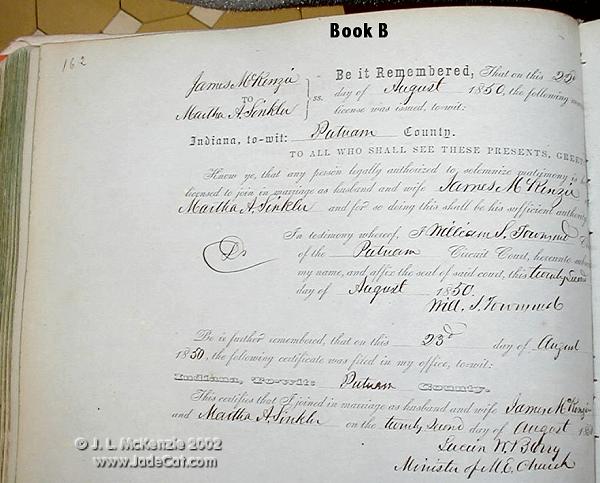 Book B
162
James McKenzie
TO
Martha A. Sinkler
ss.
Be it Remembered, That on this 22d
day of August 1850, the following
license was issued, to-wit:
Indiana, to-wit: Putnam County.
TO ALL WHO SHALL SEE THESE PRESENTS, GREET
Know ye, that any person legally authorized to solemnize matrimony is
licensed to join in marriage as husband and wife James McKenzie
Martha A. Sinkler and for so doing this shall be his sufficient authority
In testimony whereof, I William S. Townsend
of the Putnam Circuit Court, hereunto
my name, and affix the seal of said court, this twenty second
day of August 1850.
Will. S. Townsend
Be it further remembered, that on this 23d day of August
1850, the following certificate was filed in my office, to-wit:
Indiana, To-wit: Putnam County.
This certifies that I joined in marriage as husband and wife James McKenzie
and Martha A. Sinkler on the twenty second day of August
Lucien W. Berry
Minister of M. E. Church
© J. L. McKenzie 2002
www.JadeCat.com